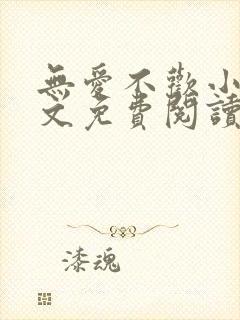 無愛不歡小
文免費閱讀
漆魂